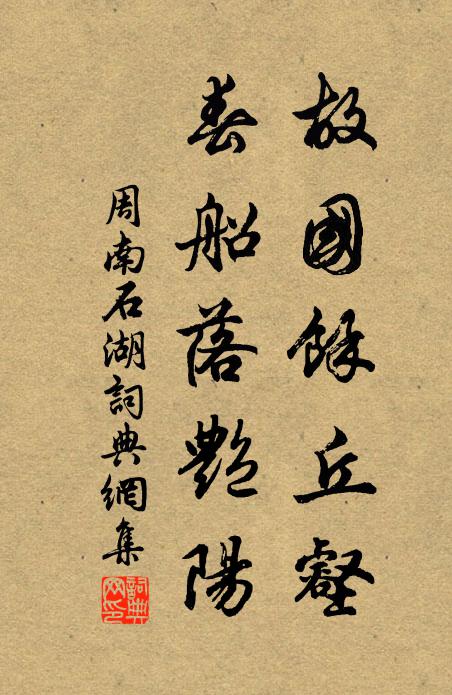 故國餘丘壑
春船落艷陽
周南石湖詞典網集
詞典网印